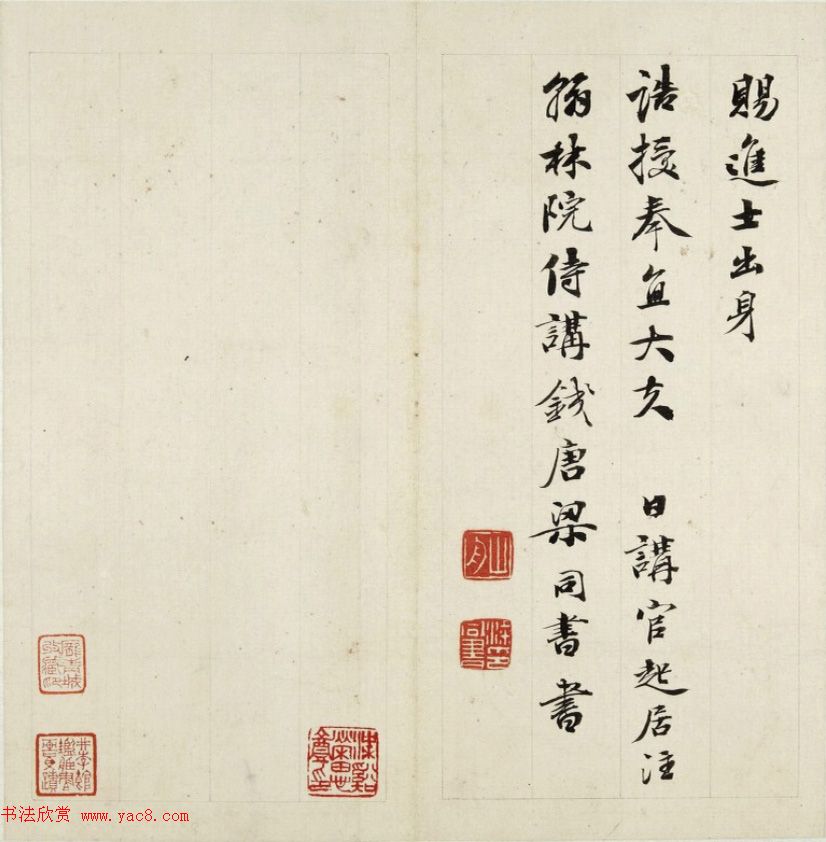 賜進士出身
誥授奉直大夫 日講官起居注
翰林院侍講錢唐梁同書書
山舟
梁同書
书法欣赏 www.yac8.com